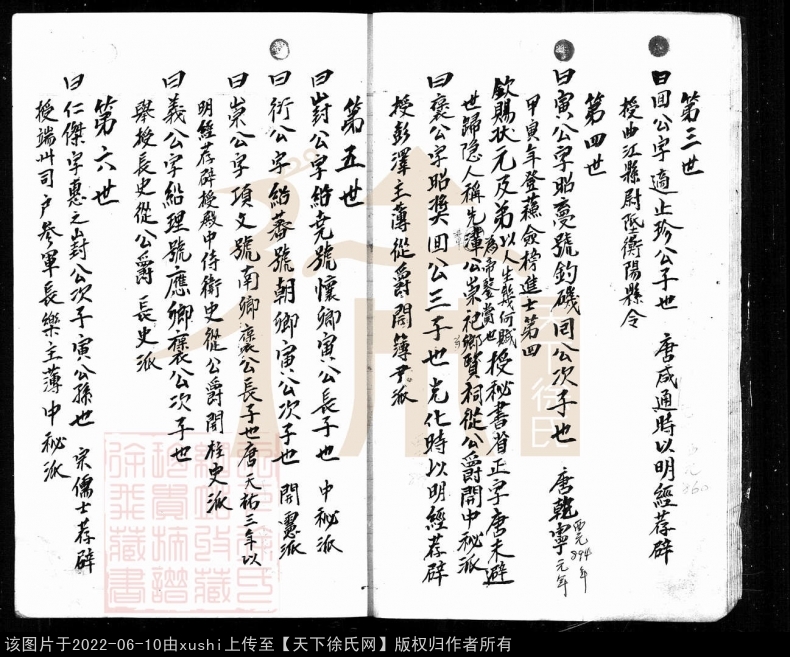 第三世
曰囬公字適止珍公子也 唐咸通時以明經荐辟
授曲江縣尉陞衡陽縣令
第四世
曰寅公字昭夢號釣磯囬公次子也 唐乾寧元年
西元894年
甲寅年登蘓儉榜進士第四
欽賜狀元及弟以人生幾何賦授秘書省正字唐末避
為帝鑒賞也
世歸隐人稱先輩公崇祀鄉賢祠從公爵開中秘派
曰褒公字昭奬囬公三子也光化時以明經荐辟
授彭澤主薄從爵開簿尹派
第五世
曰崶公字紿堯號懷卿寅公長子也 中秘派
曰衍公字紿蕃號朝卿寅公次子也 開憲派
曰崇公字項文號南卿褒公長子也唐天祐三年以
明經荐辟授殿中侍衛史從公爵開柱史派
曰義公字紿理號應卿褒公次子也
舉授長史從公爵 長史派
第六世
曰仁傑字惠之崶公次子寅公孫也 宋儒士荐辟
授端州司户參軍長樂主薄中秘派
徐氏
该图片于2022-06-10由xushi上传至【天下徐氏网】版权归作者所有